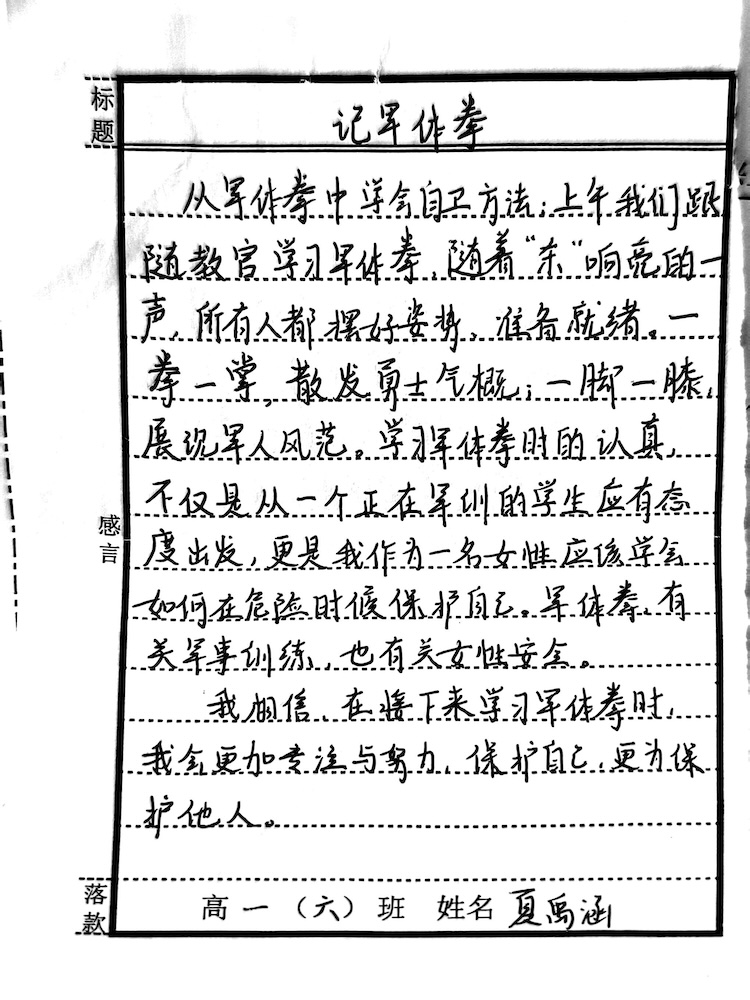 标题
记军体拳
从军体拳中学会自卫方法；上午我们跟
随教官学习军体拳，随着“东”响亮的一
声，所有人都摆好姿势，准备就绪。一
拳一掌，散发勇士气概；一脚一膝，
展现军人风范。学习军体拳时的认真，
不仅是从一个正在军训的学生应有态
度出发，更是我作为一名女性应该学会
如何在危险时候保护自己。军体拳，有
关军事训练，也有关女性安全。
我相信，在接下来学习军体拳时，
我会更加专注与努力，保护自己，更为保
护他人。
感言
落款
高一（六）班 姓名 夏禹涵